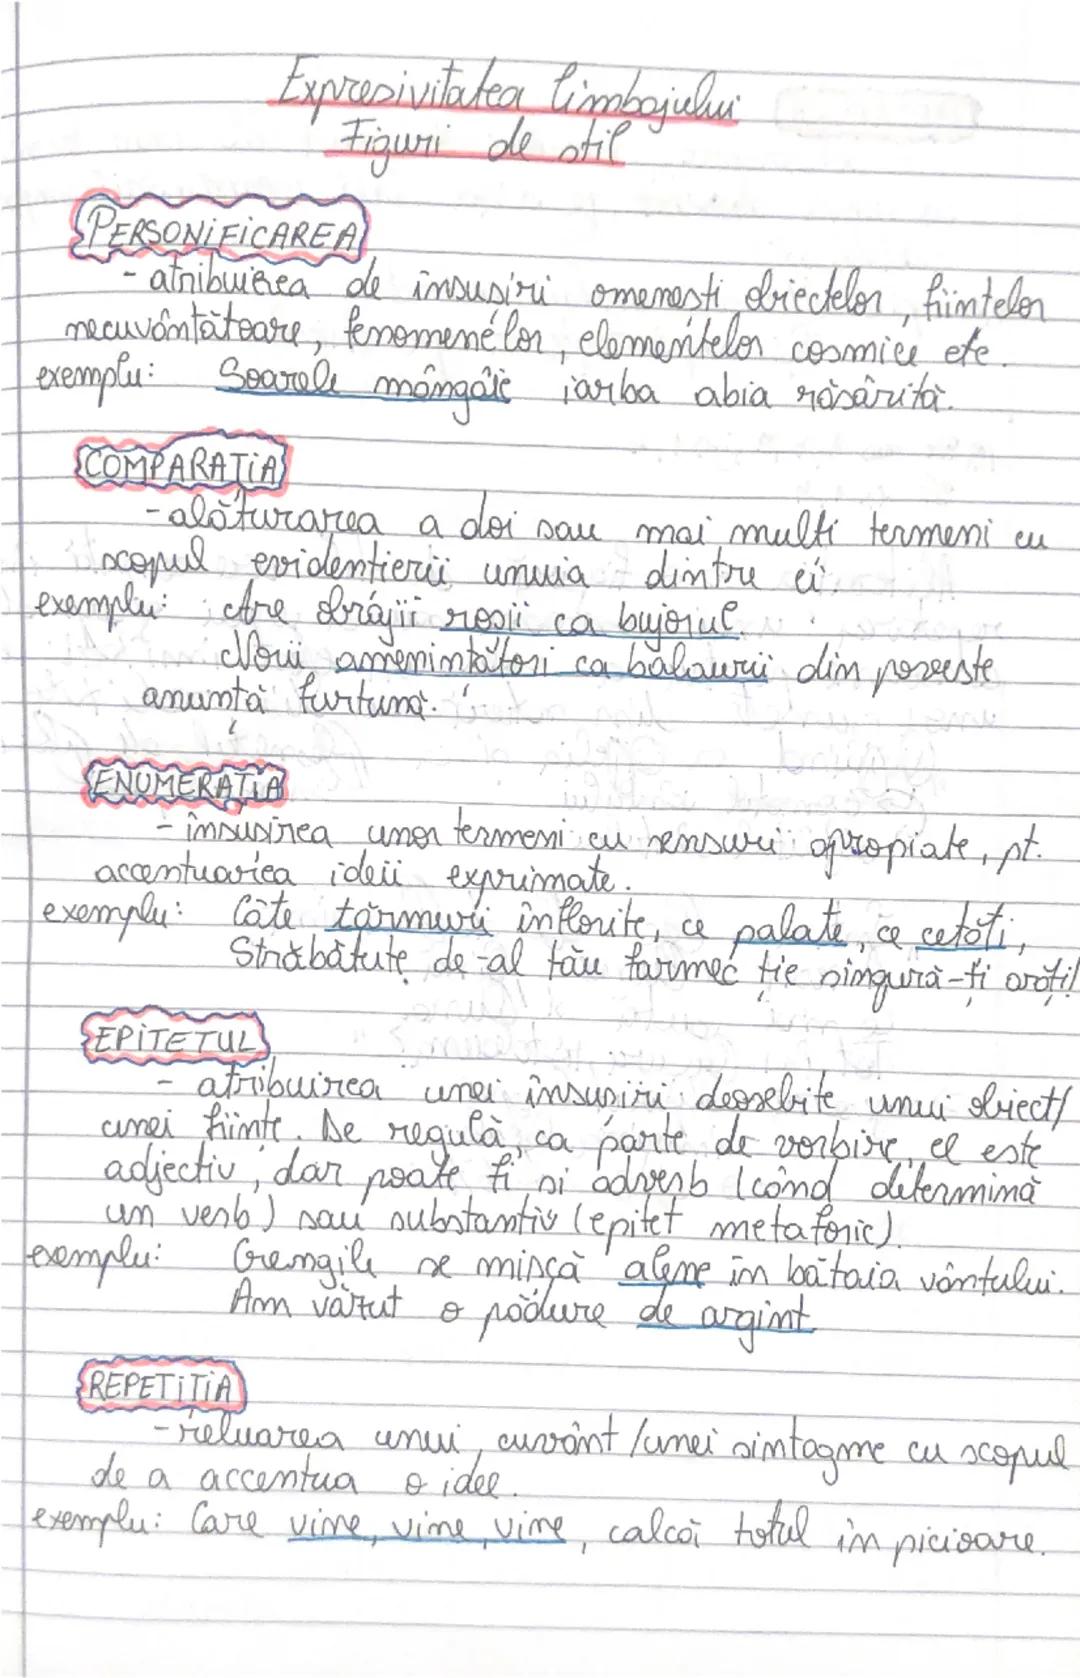 Expresivitatea limbajului
Figuri de stil
PERSONIFICAREA
- atribuirea de însușiri omenești obiectelor, ființelor
necuvântătoare, fenomenelor, elementelor cosmice etc.
exemplu: Soarele mângâie iarba abia răsărită.
COMPARAȚIA
- alăturarea a doi sau mai mulți termeni cu
scopul evidențierii unuia dintre ei.
exemplu: Are obrajii roșii ca bujorul.
Norii amenințători ca balaurii din poveste
anunță furtuna.
ENUMERAȚIA
- însușirea unor termeni cu sensuri apropiate, pt.
accentuarea ideii exprimate.
exemplu: Câte țărmuri înflorite, ce palate, ce cetăți,
Străbătute de-al tău farmec ție singură-ți arăți!
EPITETUL
- atribuirea unei însușiri deosebite unui obiect/
unei ființe. De regulă, ca parte de vorbire, el este
adjectiv, dar poate fi și adverb (când determină
un verb) sau substantiv (epitet metaforic).
exemplu: Crengile se mișcă alene în bătaia vântului.
Am văzut o pădure de argint.
REPETIȚIA
- reluarea unui cuvânt/unei sintagme cu scopul
de a accentua o idee.
exemplu: Care vine, vine, vine, calcă totul în picioare.